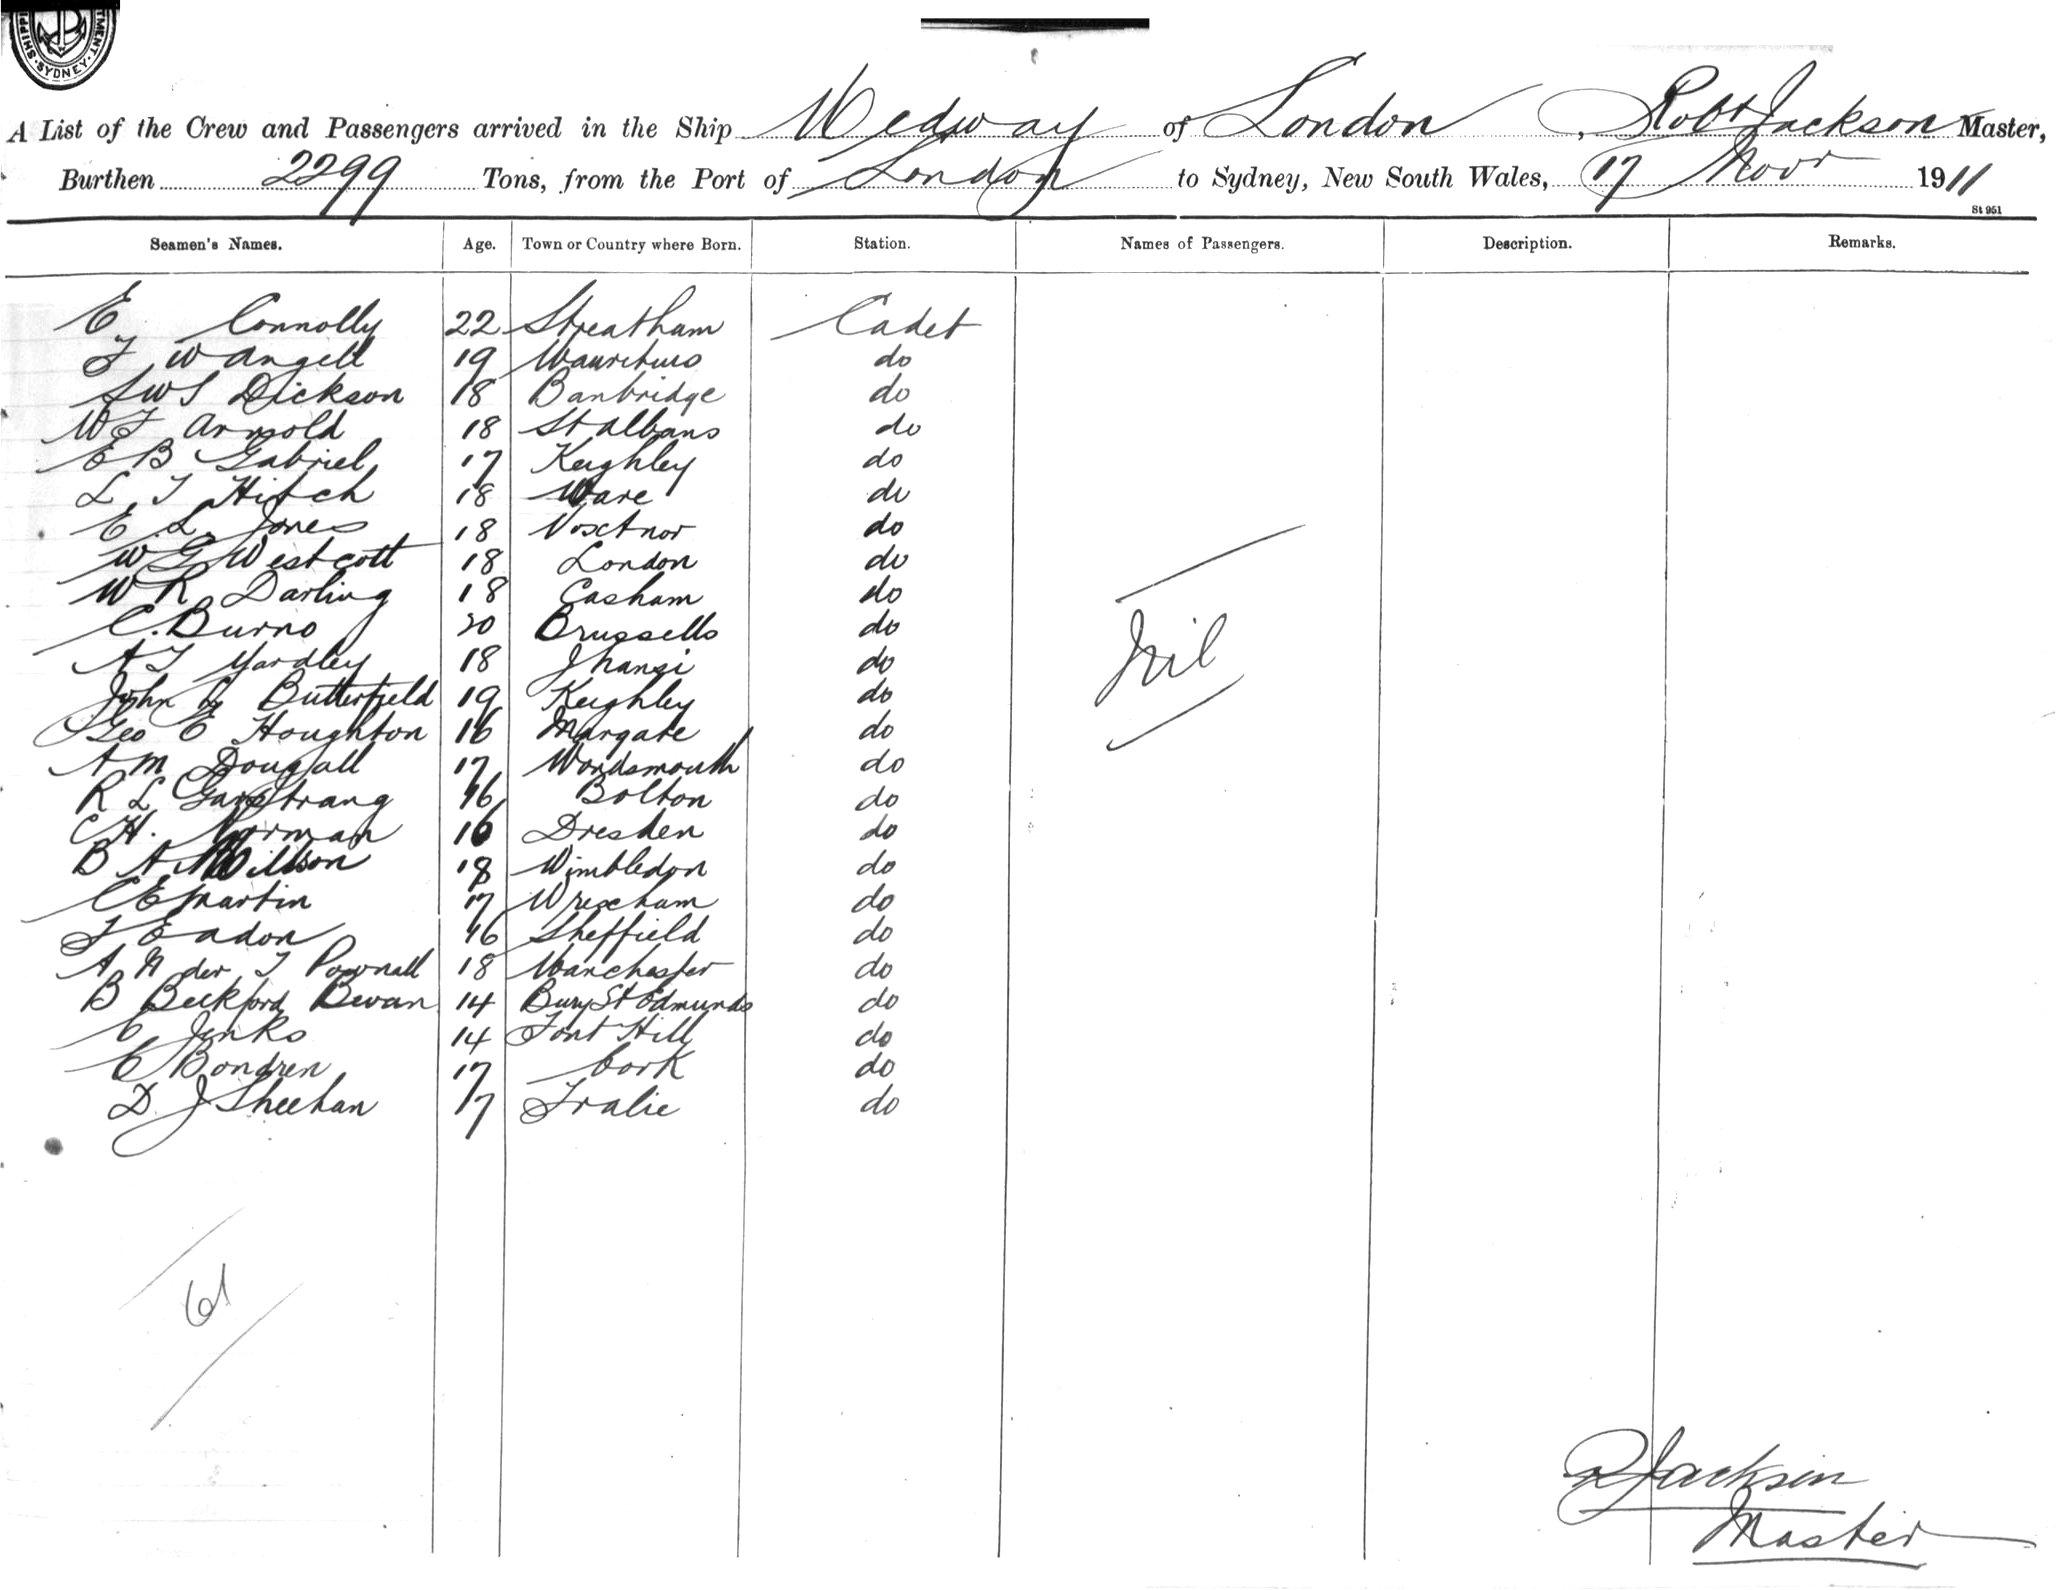 SHIPPI MENT. SYDNEY
A List of the Crew and Passengers arrived in the Ship Medway of London, Robt Jackson Master,
Burthen 2299 Tons, from the Port of London to Sydney, New South Wales, 17 Novr 1911
St 951
Seamen's Names. Age. Town or Country where Born. Station. Names of Passengers. Description. Remarks.
E Connolly 22 Streatham Cadet
F W Angell 19 Mauritius do
S W S Dickson 18 Banbridge do
W F Arnold 18 St Albans do
E B Gabriel 17 Keighley do
L T Hitch 18 Ware do
E L Jones 18 do
W G Westcott 18 London do
W R Darling 18 Casham do
C. Burno 20 Brussells do
A T Yardley 18 Jhansi do
Nil
John Butterfield 19 Keighley do
Geo E Houghton 16 Margate do
A M Dougall 17 Wondsmouth do
R L Garstrang 16 Bolton do
C H. Norman 16 Dresden do
B A Willson 18 Wimbledon do
C E Martin 17 Wrexham do
F Eadon 16 Sheffield do
A der T Pownall 18 Manchester do
B Beckford Bevan 14 Bury St Edmunds do
C Jenks 14 Font Hill do
C Bondren 17 Cork do
D J Sheehan 17 Tralie do
61
R Jackson
Master